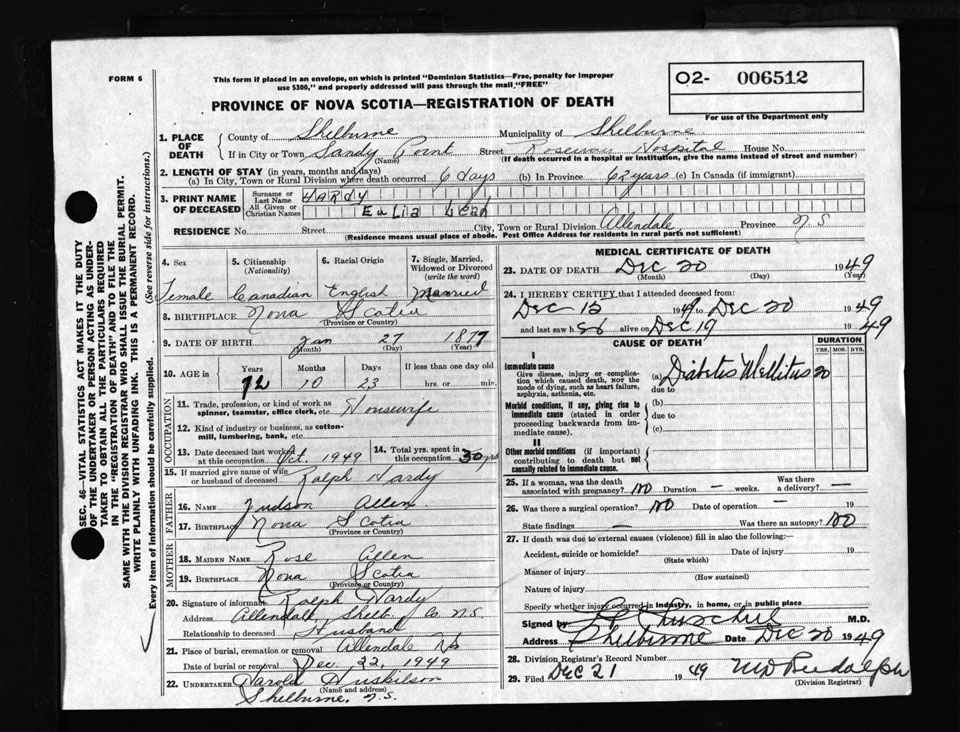 FORM 6
This form if placed in an envelope, on which is printed "Dominion Statistics—Free, penalty for improper
use $300," and properly addressed will pass through the mail "FREE"
O2- 006512
For use of the Department only
PROVINCE OF NOVA SCOTIA—REGISTRATION OF DEATH
SEC. 46—VITAL STATISTICS ACT MAKES IT THE DUTY
OF THE UNDERTAKER OR PERSON ACTING AS UNDER-
TAKER TO OBTAIN ALL THE PARTICULARS REQUIRED
IN THE "REGISTRATION OF DEATH" AND TO FILE THE
SAME WITH THE DIVISION REGISTRAR WHO SHALL ISSUE THE BURIAL PERMIT.
WRITE PLAINLY WITH UNFADING INK. THIS IS A PERMANENT RECORD.
Every item of information should be carefully supplied. (See reverse side for instructions.)
1. PLACE OF DEATH County of Shelburne Municipality of Shelburne
If in City or Town Sandy Point Street Roseway Hospital House No.
(Name) (If death occurred in a hospital or institution, give the name instead of street and number)
2. LENGTH OF STAY (in years, months and days)
(a) In City, Town or Rural Division where death occurred 6 days (b) In Province 62 years (c) In Canada (if immigrant)
3. PRINT NAME OF DECEASED Surname or Last Name HARDY
All Given or Christian Names Eulila Leah
RESIDENCE No. Street City, Town or Rural Division Allendale Province N.S
(Residence means usual place of abode. Post Office Address for residents in rural parts not sufficient)
4. Sex 5. Citizenship (Nationality) 6. Racial Origin 7. Single, Married, Widowed or Divorced (write the word)
Female Canadian English Married
8. BIRTHPLACE Nova Scotia
(Province or Country)
9. DATE OF BIRTH Jan 27 1877
(Month) (Day) (Year)
10. AGE in Years Months Days If less than one day old
72 10 23 hrs. or min.
OCCUPATION
11. Trade, profession, or kind of work as spinner, teamster, office clerk, etc. Housewife
12. Kind of industry or business, as cotton-mill, lumbering, bank, etc.
13. Date deceased last worked at this occupation Oct. 1949 14. Total yrs. spent in this occupation 30 yrs
15. If married give name of wife or husband of deceased Ralph Hardy
FATHER
16. NAME Judson Allen
17. BIRTHPLACE Nova Scotia
(Province or Country)
MOTHER
18. MAIDEN NAME Rose Allen
19. BIRTHPLACE Nova Scotia
(Province or Country)
20. Signature of informant Ralph Hardy
Address Allendale, Shelb. Co. N.S.
Relationship to deceased Husband
21. Place of burial, cremation or removal Allendale NS
Date of burial or removal Dec. 22, 1949
22. UNDERTAKER Harold Huskilson
(Name and address)
Shelburne, N.S.
MEDICAL CERTIFICATE OF DEATH
23. DATE OF DEATH Dec 20 1949
(Month) (Day) (Year)
24. I HEREBY CERTIFY that I attended deceased from:
Dec 15 1949 to Dec 20 1949
and last saw h er alive on Dec 19 1949
CAUSE OF DEATH DURATION
YRS. MOS. DYS.
I
Immediate cause
Give disease, injury or complication which caused death, NOT the mode of dying, such as heart failure, asphyxia, asthenia, etc.
(a) Diabetes Mellitus 20
due to
Morbid conditions, if any, giving rise to immediate cause (stated in order proceeding backwards from immediate cause).
(b)
due to
(c)
II
Other morbid conditions (if important) contributing to death but not causally related to immediate cause.
25. If a woman, was the death associated with pregnancy? NO Duration — weeks. Was there a delivery? —
26. Was there a surgical operation? NO Date of operation — 19
State findings — Was there an autopsy? NO
27. If death was due to external causes (violence) fill in also the following:—
Accident, suicide or homicide? Date of injury 19
(State which)
Manner of injury
(How sustained)
Nature of injury
Specify whether injury occurred in industry, in home, or in public place
Signed by M.D.
Address Shelburne Date Dec 20 1949
28. Division Registrar's Record Number
29. Filed Dec 21 1949
(Division Registrar)